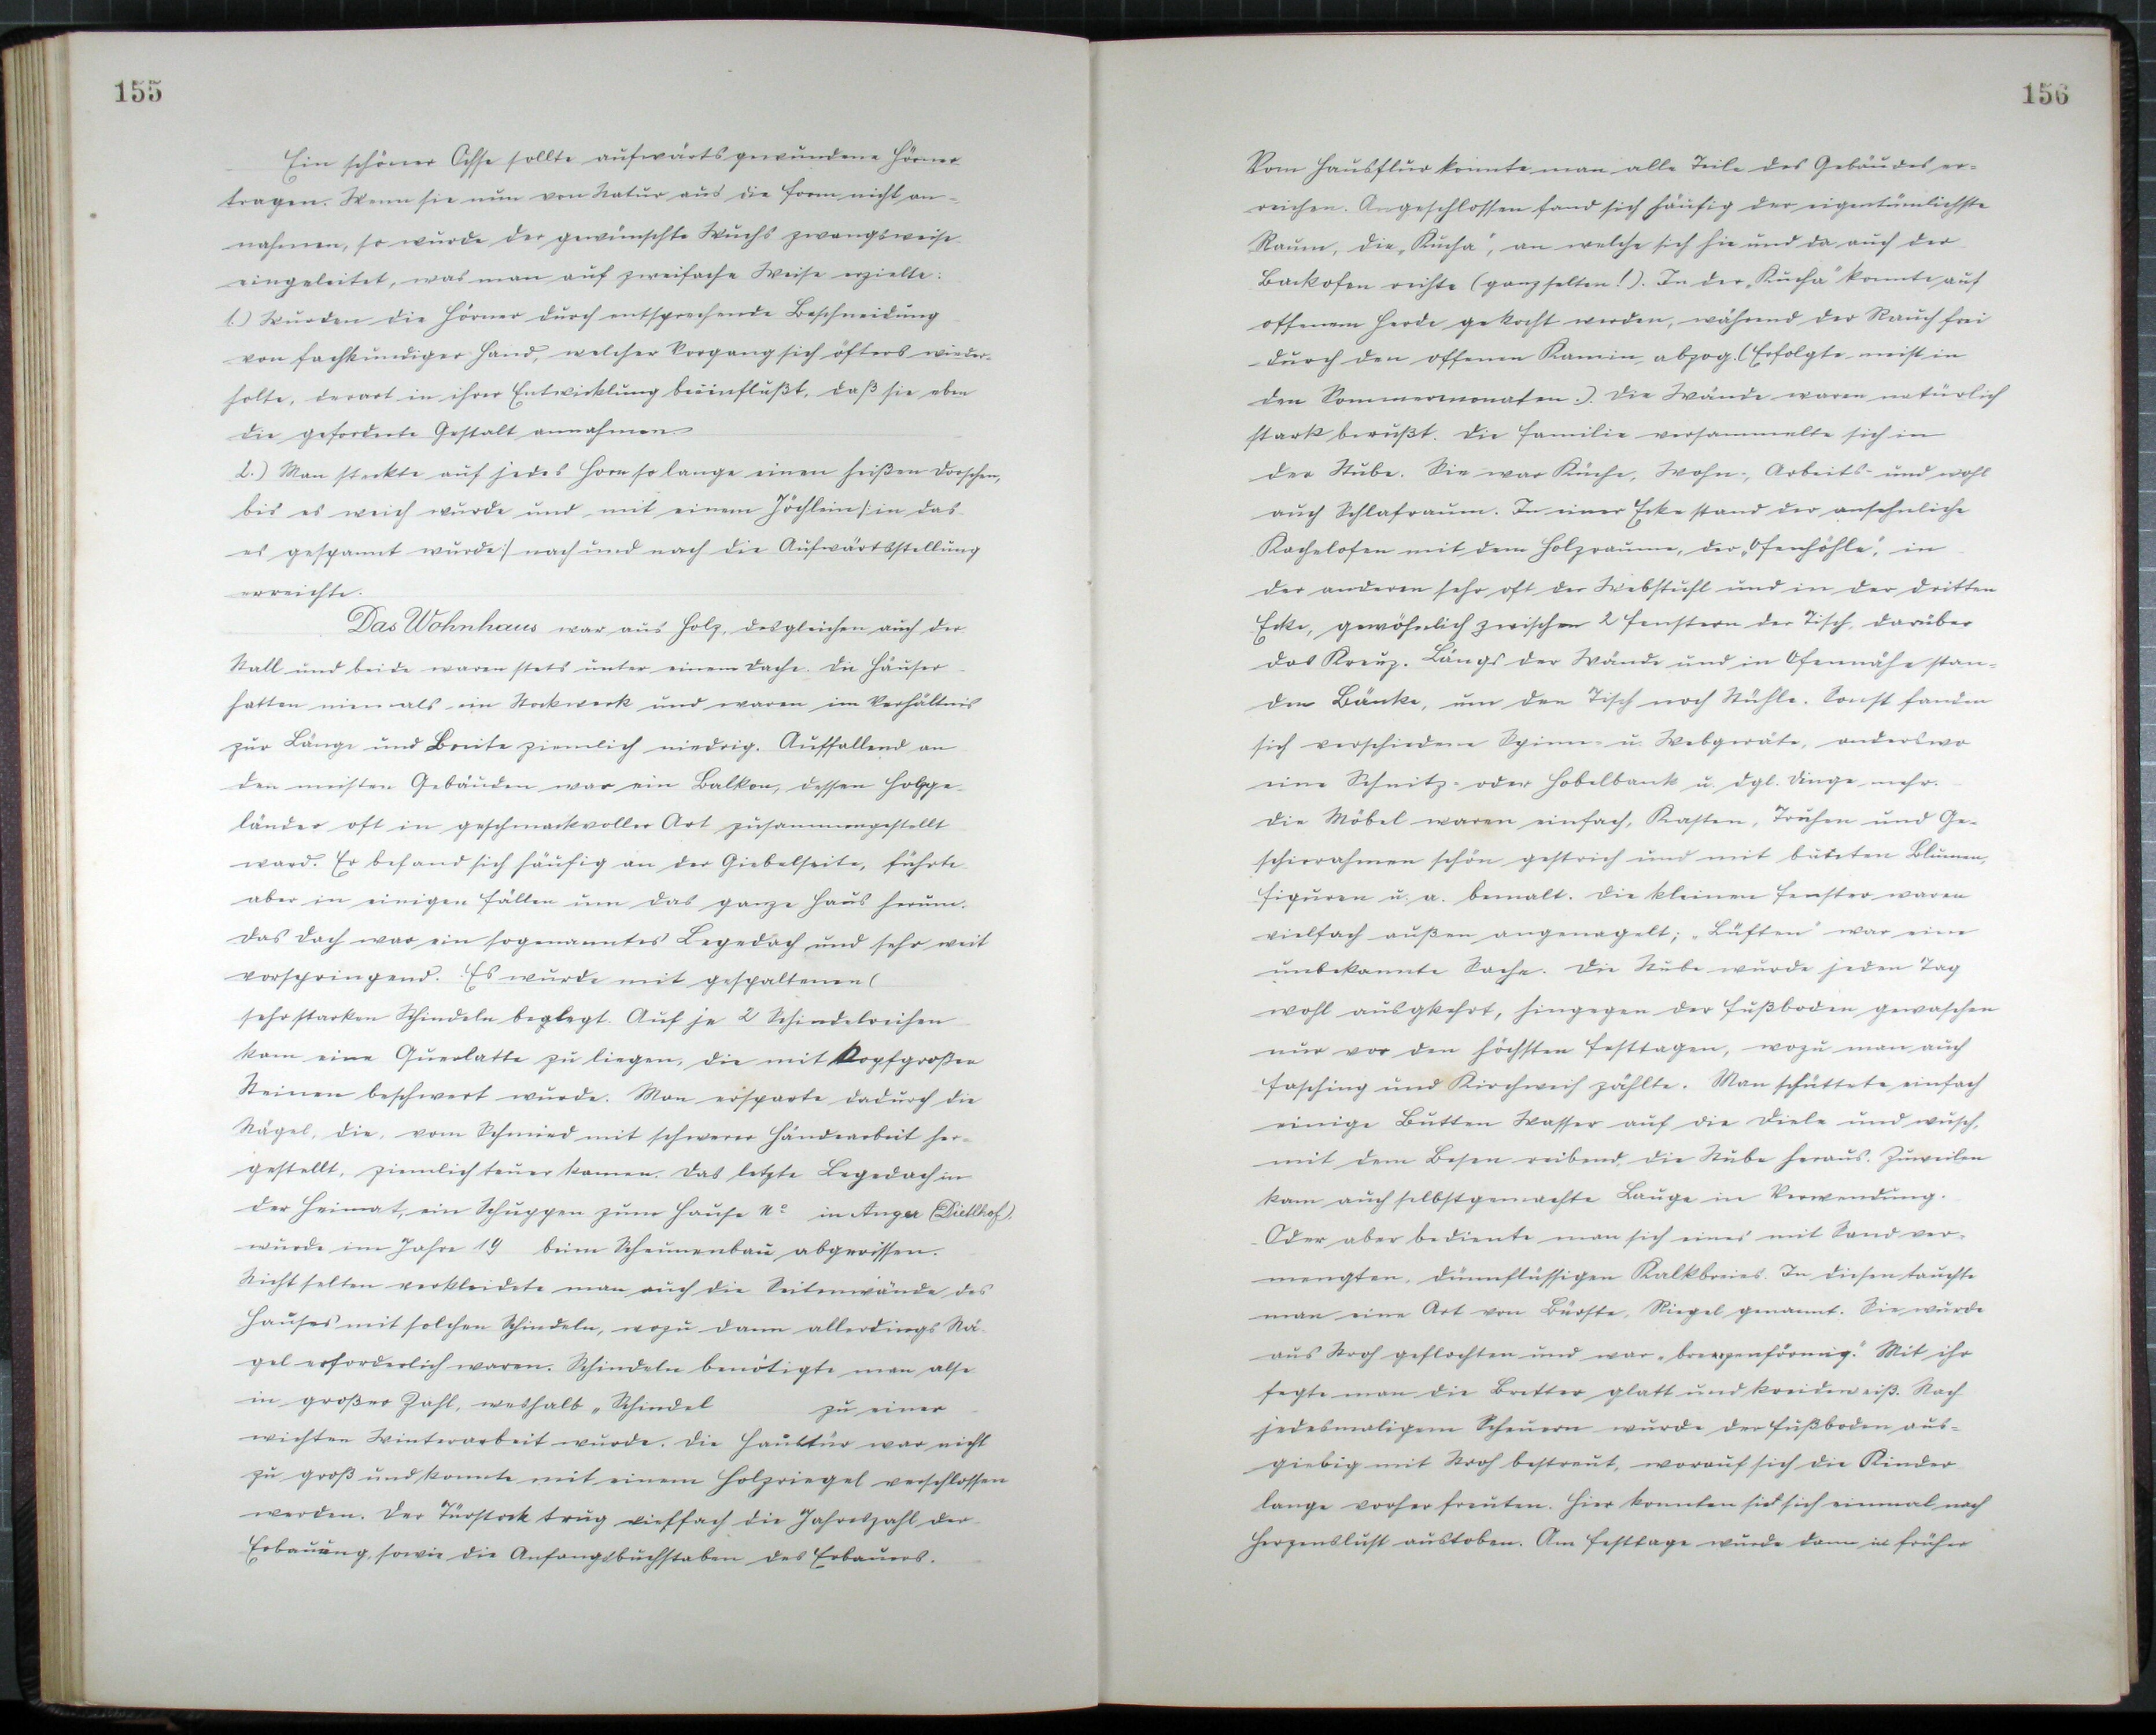 155
Ein schöner Ochse sollte aufwärtsgewundene Hörner
tragen. Wenn sie nun von Natur aus die Form nicht an-
nahmen, so wurde der gewünschte Wuchs zwangsweise
eingeleitet, was man auf zweifache Weise erzielte:
1.) Wurden die Hörner durch entsprechende Beschneidung
von fachkundiger Hand, welcher Vorgang sich öfters wieder-
holte, derart in ihrer Entwicklung beeinflußt, daß sie eben
die geforderte Gestalt annahmen.
2.) Man steckte auf jedes Horn so lange einen heißen Dorschen,
bis es weich wurde und mit einem Jöchlein /:in das
es gespannt wurde:/ nach und nach die Aufwärtsstellung
erreichte.
Das Wohnhaus war aus Holz, desgleichen auch der
Stall und beide waren stets unter einem Dache. Die Häuser
hatten niemals ein Stockwerk und waren im Verhältnis
zur Länge und Breite ziemlich niedrig. Auffallend an
den meisten Gebäuden war ein Balkon, dessen Holzge-
länder oft in geschmackvoller Art zusammengestellt
ward. Er befand sich häufig an der Giebelseite, führte
aber in einigen Fällen um das ganze Haus herum.
Das Dach war ein sogenanntes Legedach und sehr weit
vorspringend. Es wurde mit gespaltenen (
sehr starken Schindeln beglegt. Auf je 2 Schindelreihen
kam eine Querlatte zu liegen, die mit kopfgroßen
Steinen beschwert wurde. Man ersparte dadurch die
Nägel, die, vom Schmied mit schwerer Händearbeit her-
gestellt, ziemlich teuer kamen. Das letzte Legedach in
der Heimat, ein Schuppen zum Hause No in Anger (Dietlhof),
wurde im Jahre 19 beim Scheunenbau abgerissen.
Nicht selten verkleidete man auch die Seitenwände des
Hauses mit solchen Schindeln, wozu dann allerdings Nä-
gel erforderlich waren. Schindeln benötigte man also
in großer Zahl, weshalb „Schindel zu einer
wichten Winterarbeit wurde. Die Haustür war nicht
zu groß und konnte mit einem Holzriegel verschlossen
werden. Der Türstock trug vielfach die Jahreszahl der
Erbauung, sowie die Anfangsbuchstaben des Erbauers.
156
Vom Hausflur konnte man alle Teile des Gebäudes er-
reichen. Angeschlossen fand sich häufig der eigentümlichste
Raum, die „Kucha", an welche sich hie und da auch der
Backofen reihte (ganz selten!). In der „Kucha" konnte auf
offenem Herde gekocht werden, während der Rauch frei
durch den offenen Kamin abzog. (Erfolgte meist in
den Sommermonaten.). Die Wände waren natürlich
stark berußt. Die Familie versammelte sich in
der Stube. Sie war Küche, Wohn-, Arbeits- und wohl
auch Schlafraum. In einer Ecke stand der ansehnliche
Kachelofen mit dem Holzraume, der „Ofenhöhle", in
der anderen sehr oft der Webstuhl und in der dritten
Ecke, gewöhnlich zwischen 2 Fenstern der Tisch, darüber
das Kreuz. Längs der Wände und in Ofennähe stan-
den Bänke, um den Tisch noch Stühle. Sonst fanden
sich verschiedene Spinn- u. Webgeräte, anderswo
eine Schnitz- oder Hobelbank u. dgl. Dinge mehr.
Die Möbel waren einfach, Kasten, Truhen und Ge-
schirrahmen schön gestrich und mit bunten Blumen,
Figuren u. a. bemalt. Die kleinen Fenster waren
vielfach außen angenagelt; „Lüften" war eine
unbekannte Sache. Die Stube wurde jeden Tag
wohl ausgkehrt, hingegen der Fußboden gewaschen
nur vor den höchsten Festtagen, wozu man auch
Fasching und Kirchweih zählte. Man schüttete einfach
einige Butten Wasser auf die Diele und wusch,
mit dem Besen reibend, die Stube heraus. Zuweilen
kam auch selbstgemachte Lauge in Verwendung.
Oder aber bediente man sich eines mit Sand ver-
mengten, dünnflüssigen Kalkbreies. In diesen tauchte
man eine Art von Bürste, Riegel genannt. Sie wurde
aus Stroh geflochten und war „brezenförmig." Mit ihr
fegte man die Bretter glatt und kreideweiß. Nach
jedesmaligem Scheuern wurde der Fußboden aus-
giebig mit Stroh bestreut, worauf sich die Kinder
lange vorher freuten. Hier konnten sie sich einmal nach
Herzenslust austoben. Am Festtage wurde dann in früher